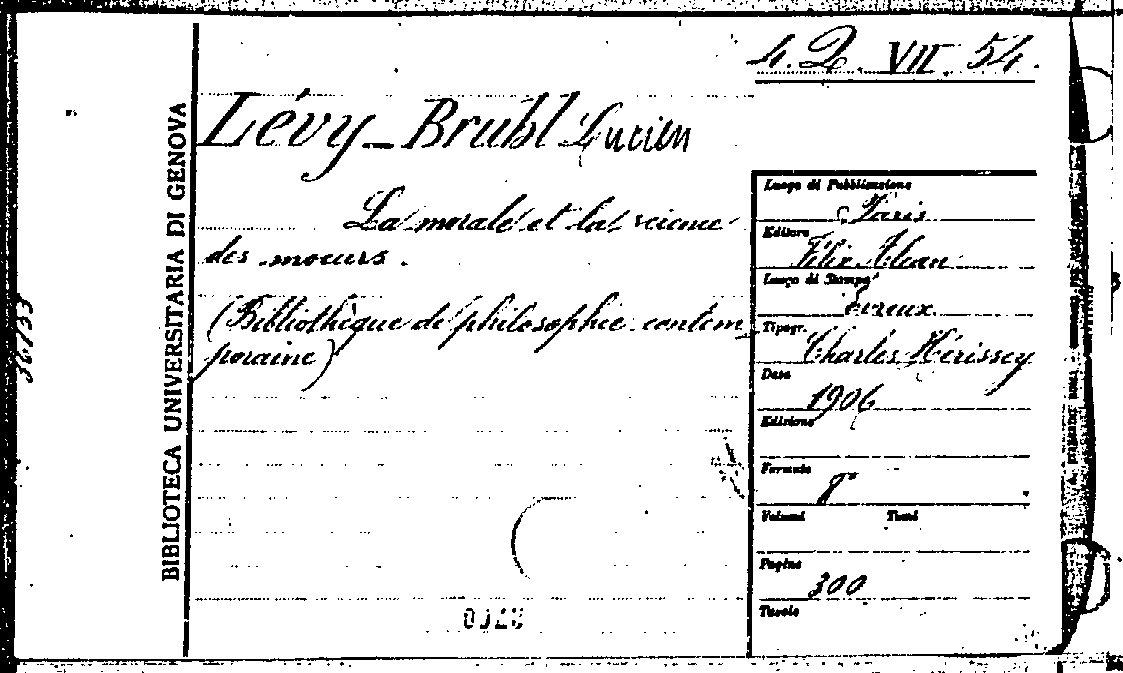 4. Q. VII. 54.
BIBLIOTECA UNIVERSITARIA DI GENOVA
Lévy-Bruhl Lucien
La morale et la science
des moeurs.
(Bibliothèque de philosophie contem
poraine)
Luogo di Pubblicazione
Paris
Editore
Félix Alcan
Luogo di Stampa
Évreux
Tipogr.
Charles Hérissey
Data
1906
Edizione
Formato
8°
Volumi Tomi
Pagine
300
Tavole